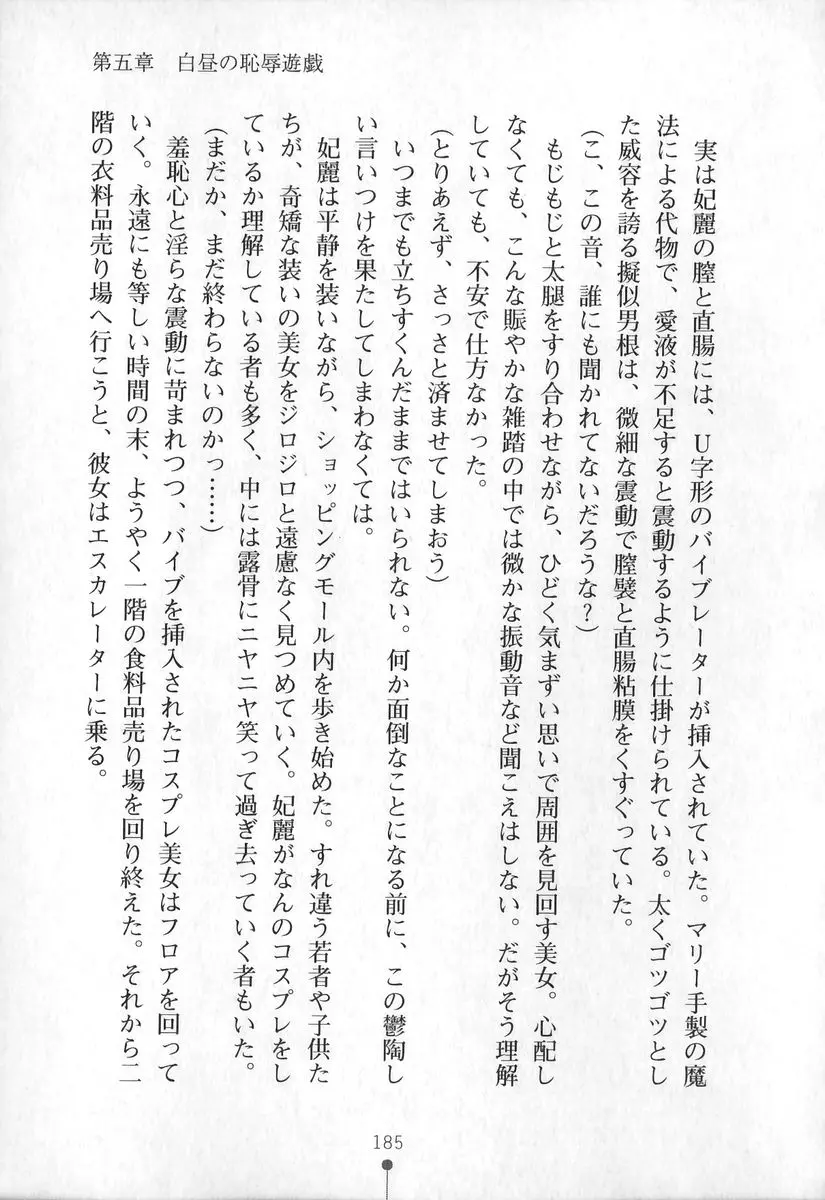 第五章　白昼の恥辱遊戯
　実は妃麗の膣と直腸には、U字形のバイブレーターが挿入されていた。マリー手製の魔
法による代物で、愛液が不足すると震動するように仕掛けられている。太くゴツゴツとし
た威容を誇る擬似男根は、微細な震動で膣襞と直腸粘膜をくすぐっていた。
（こ、この音、誰にも聞かれてないだろうな？）
　もじもじと太腿をすり合わせながら、ひどく気まずい思いで周囲を見回す美女。心配し
なくても、こんな賑やかな雑踏の中では微かな振動音など聞こえはしない。だがそう理解
していても、不安で仕方なかった。
（とりあえず、さっさと済ませてしまおう）
　いつまでも立ちすくんだままではいられない。何か面倒なことになる前に、この鬱陶し
い言いつけを果たしてしまわなくては。
　妃麗は平静を装いながら、ショッピングモール内を歩き始めた。すれ違う若者や子供た
ちが、奇矯な装いの美女をジロジロと遠慮なく見つめていく。妃麗がなんのコスプレをし
ているか理解している者も多く、中には露骨にニヤニヤ笑って過ぎ去っていく者もいた。
（まだか、まだ終わらないのかっ……）
　羞恥心と淫らな震動に苛まれつつ、バイブを挿入されたコスプレ美女はフロアを回って
いく。永遠にも等しい時間の末、ようやく一階の食料品売り場を回り終えた。それから二
階の衣料品売り場へ行こうと、彼女はエスカレーターに乗る。
185